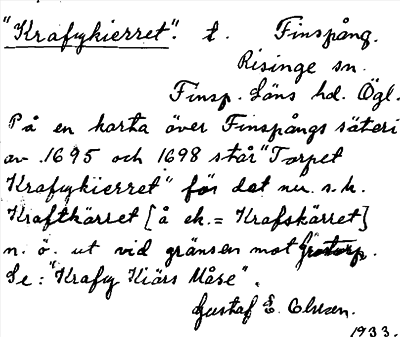 "Krafykierret". t. Finspång.
Risinge sn.
Finsp. Läns hd. Ögl.
På en karta över Finspångs säteri
av 1695 och 1698 står "Torpet
Krafykierret" för det nu. s. k.
Kraftkärret [å ek. = Krafskärret]
n. ö. ut vid gränsen mot
Se: "Krafy Kiärs Måse".
Gustaf E. Olsson.
1933.